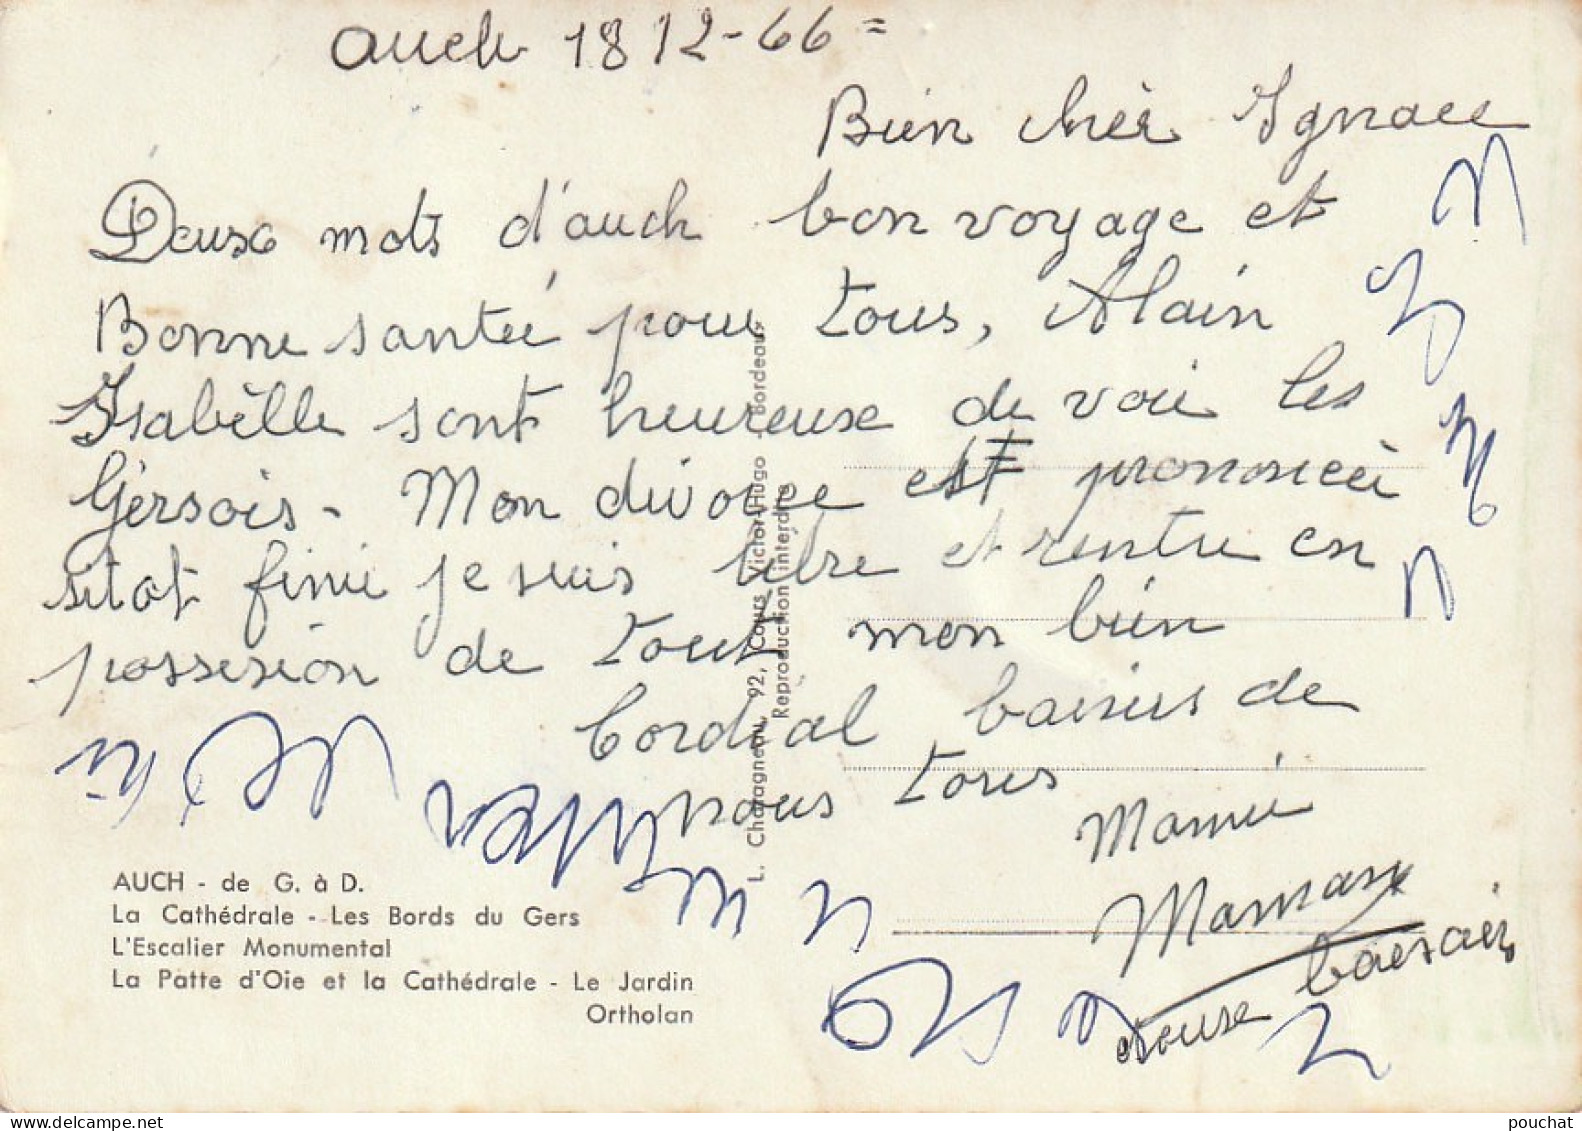 Auch 18 12-66=
Bien chèr Ignace
Deuse mots d'auch bon voyage et
Bonne santée pour tous, Alain
Isabèlle sont heureuse de voir les
Gèrsois - Mon divorce est prononcèr
finie je suis libre et rentre en
possesion de tout mon bien
Cordial baisers de
nous tous
Mamie
baesain
AUCH - de G. à D.
La Cathédrale - Les Bords du Gers
L'Escalier Monumental
La Patte d'Oie et la Cathédrale - Le Jardin
Ortholan
L. Chatagneau, 92, Cours Victor-Hugo - Bordeaux
Reproduction interdite
pouchat
delcampe.net